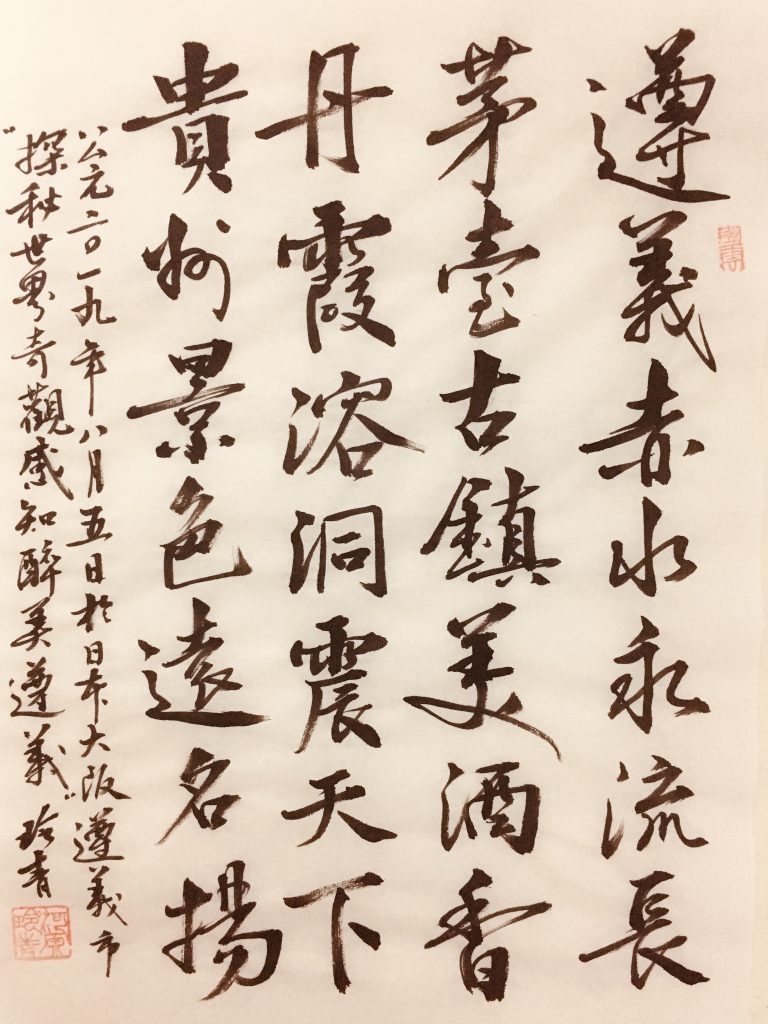 遵義赤水永流長
茅臺古鎮美酒香
丹霞溶洞震天下
貴州景色遠名揚
公元二〇一九年八月五日於日本大阪遵義市
"探秘世界奇觀感知醉美遵義"玲青